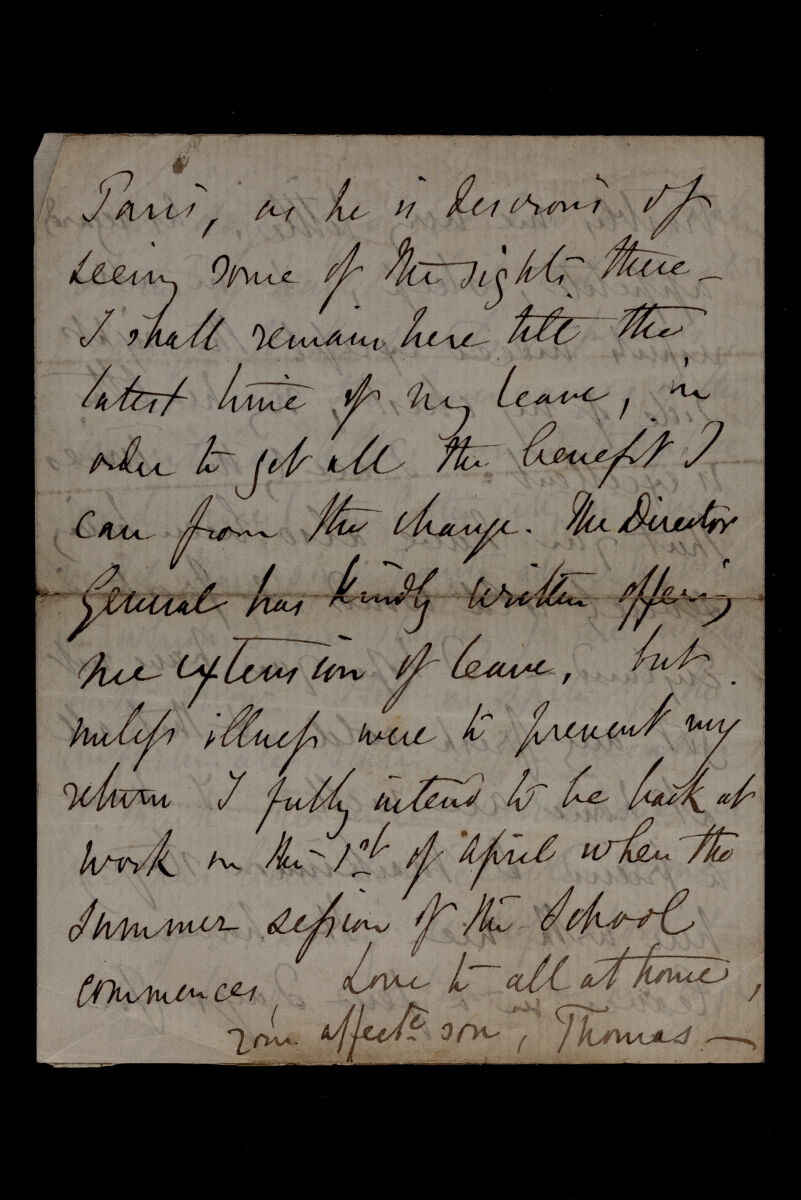 Paris, as he is desirous of
seeing some of the sights there –
I shall remain here till the
latest time of my leave, in
order to get all the benefit I
can from the change. The Director
General has kindly written offering
me extension of leave, but
unless illness were to prevent my
return I fully intend to be back at
work on the 1st of April when the
summer session of the School
commences, Love to all at home,
Your affecte son, Thomas —